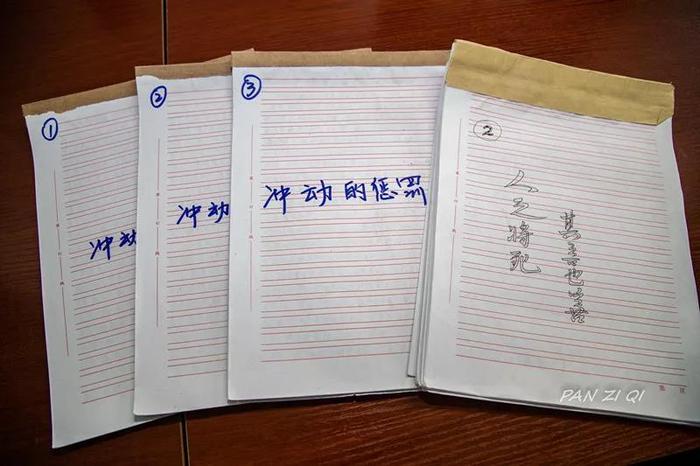 ①
冲动
②
冲动
③
冲动的惩罚
②
人之将死
其言也善
PAN ZI QI